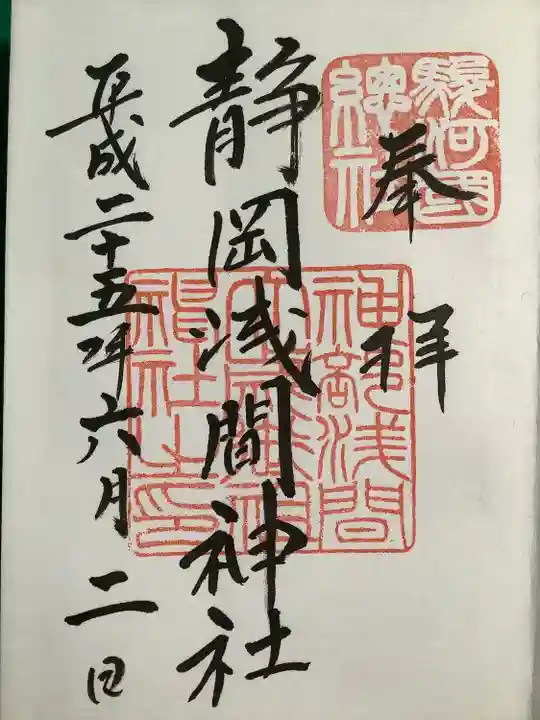 奉拝
駿河國
總社
静岡浅間神社
神部浅間
大歳御祖
神社之印
平成二十五年六月二日